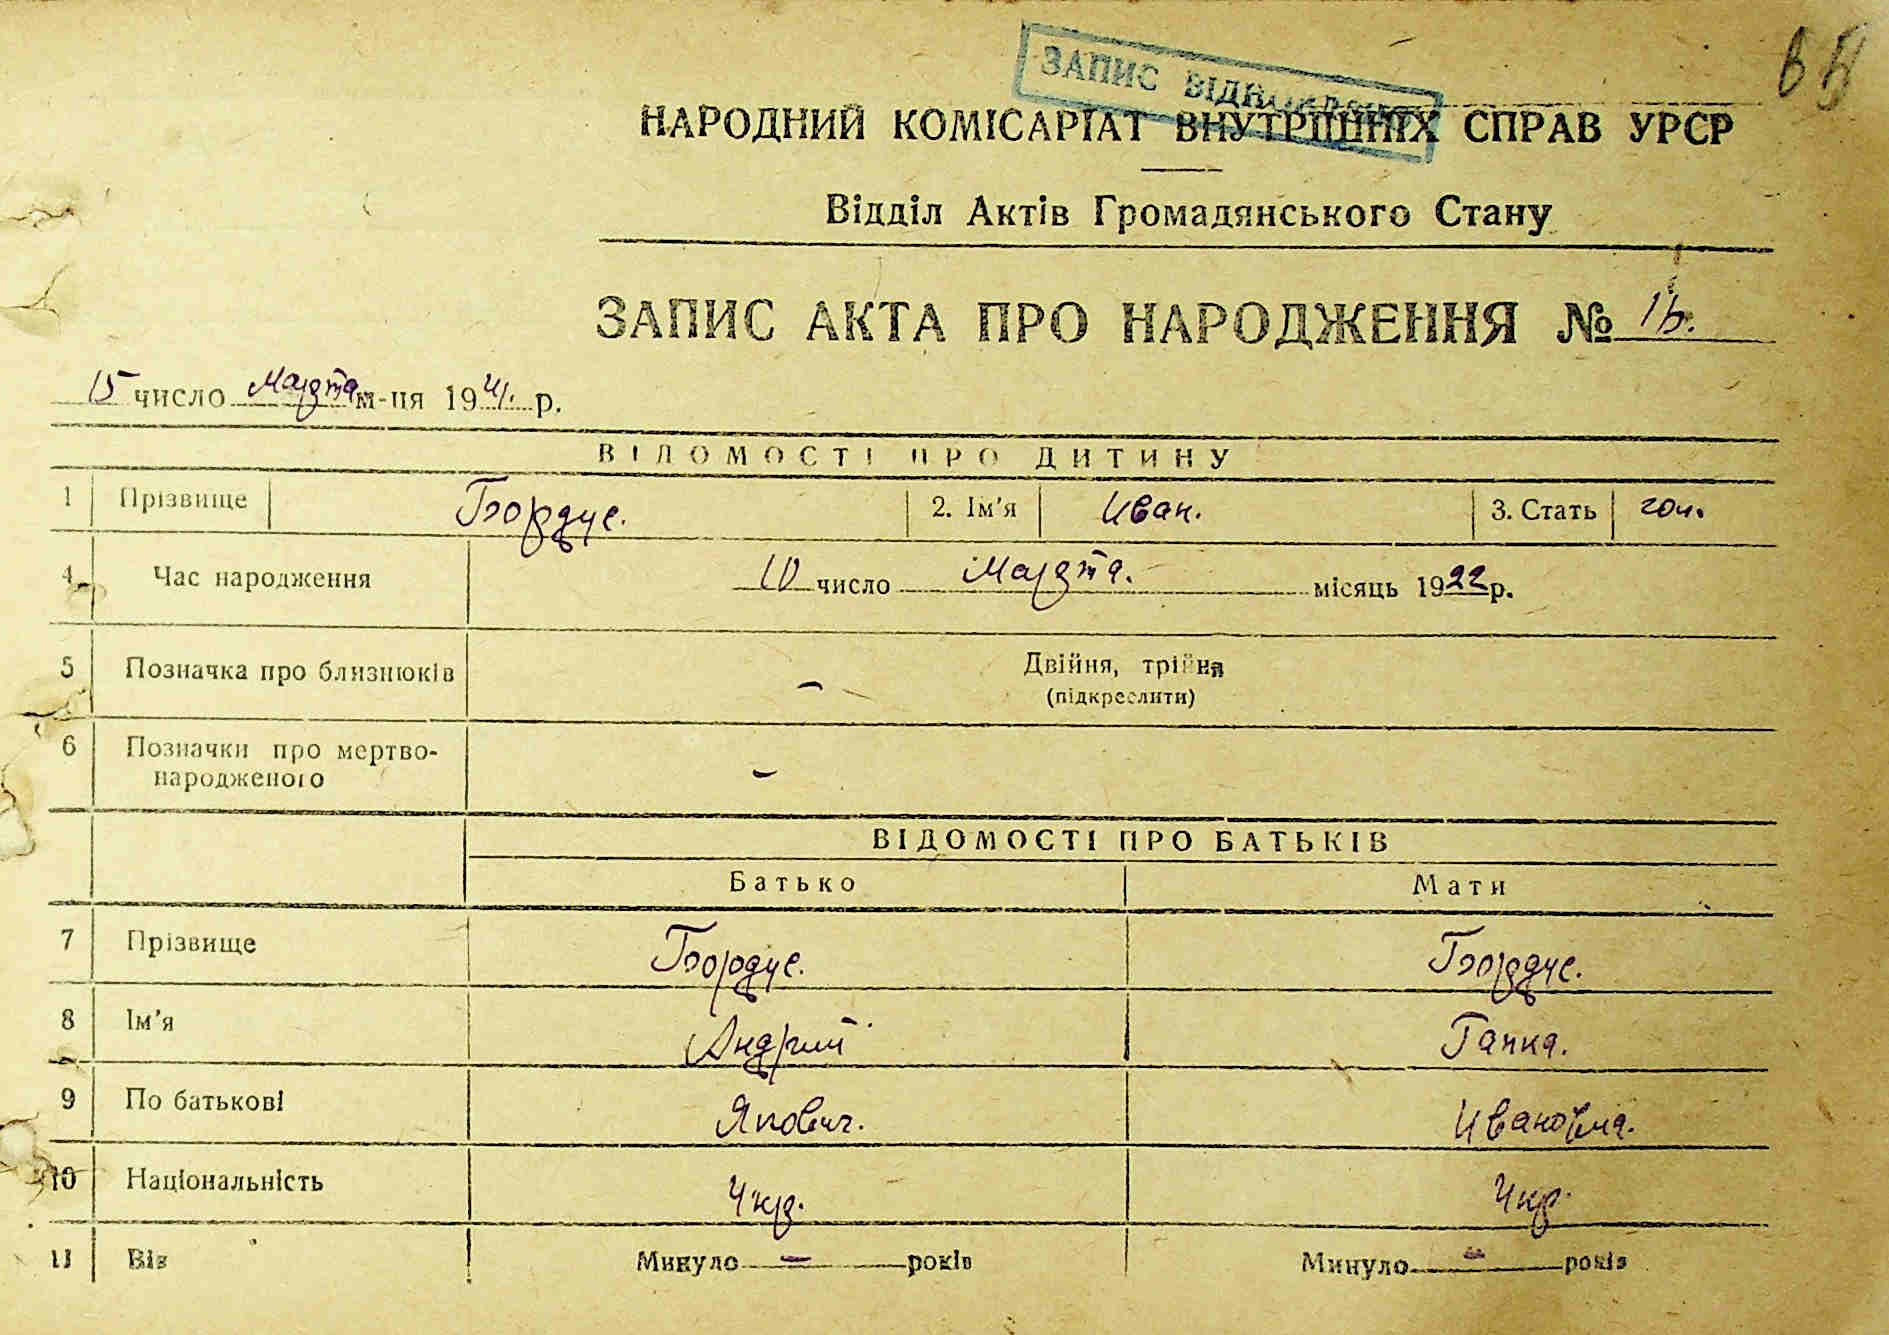 ЗАПИС ВІДНОВЛЕНО
НАРОДНИЙ КОМІСАРІАТ ВНУТРІШНІХ СПРАВ УРСР
Відділ Актів Громадянського Стану
ЗАПИС АКТА ПРО НАРОДЖЕННЯ № 16.
15 число Марта м-ця 1941. р.
ВІДОМОСТІ ПРО ДИТИНУ
1 Прізвище Бордус. 2. Ім'я Иван. 3. Стать чол.
4 Час народження 10 число Марта. місяць 1922 р.
5 Позначка про близнюків - Двійня, трійня
(підкреслити)
6 Позначки про мертво-
народженого -
ВІДОМОСТІ ПРО БАТЬКІВ
Батько Мати
7 Прізвище Бордус. Бордус.
8 Ім'я Андрий Гапка.
9 По батькові Якович. Ивановна.
10 Національність Укр. Укр.
11 Вік Минуло - років Минуло - років